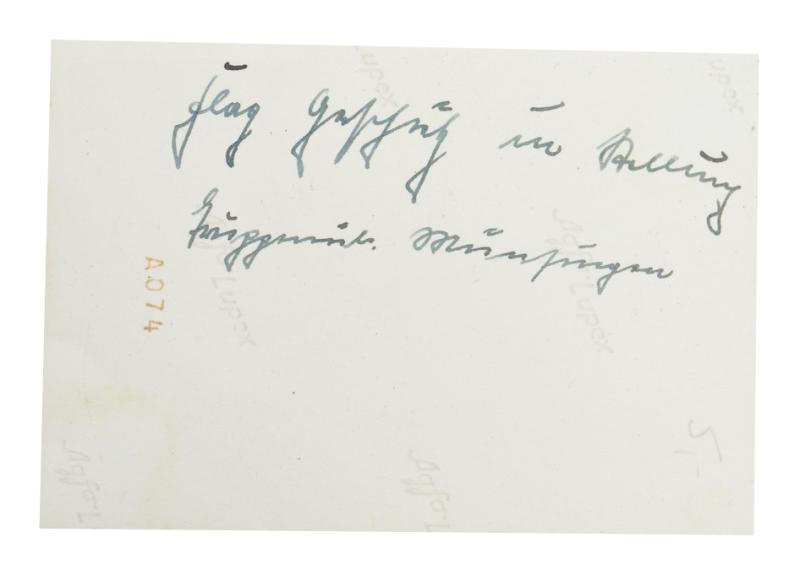 Flag Geschütz in Stellung
Truppenüb. Münsingen
A074
Agfa-Lupex
Agfa-Lupex
Lupex
Lupex
Agfa-L
Agfa-L
5,-